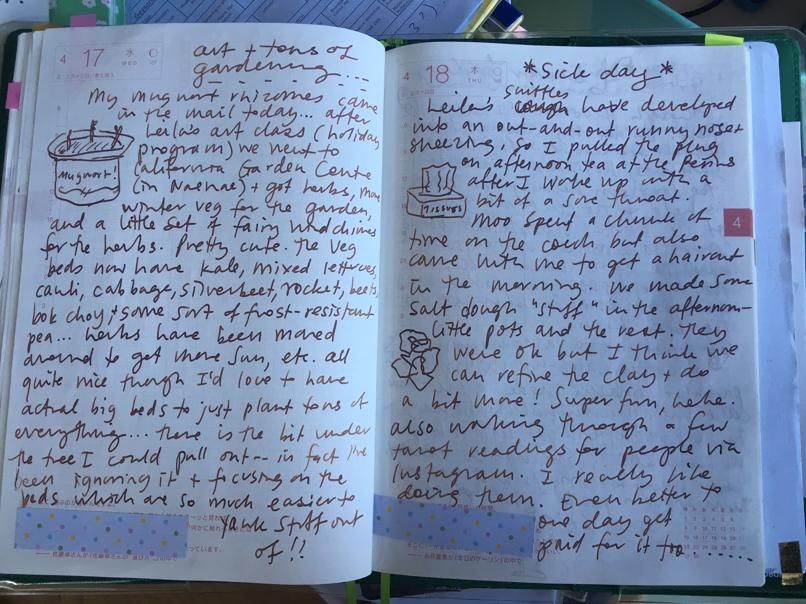 4 17 水
WED
art + tons of
gardening...
My mugwort rhizomes came
in the mail today... after
Leila's art class (holiday
program) we went to
California Garden Centre
(in Naenae) + got herbs, more
winter veg for the garden,
and a little set of fairy windchimes
for the herbs. Pretty cute. The veg
beds now have kale, mixed lettuces,
cauli, cabbage, silverbeet, rocket, beets,
bok choy, + some sort of frost-resistant
pea... herbs have been moved
around to get more sun, etc. all
quite nice though I'd love to have
actual big beds to just plant tons of
everything... there is the bit under
the tree I could pull out -- in fact I've
been ignoring it + focusing on the
beds which are so much easier to
yank stuff out
of!!
Mugwort!
4 18 木
THU
*Sick day*
sniffles
Leila's cough have developed
into an out-and-out runny nose +
sneezing, so I pulled the plug
on afternoon tea at the
after I woke up with a
bit of a sore throat.
Moo spent a chunk of
time on the couch but also
came with me to get a haircut
in the morning. We made some
salt dough "stuff" in the afternoon–
little pots and the rest. They
were ok but I think we
can refine the clay + do
a bit more! Super fun, hehe.
also working through a few
tarot readings for people via
Instagram. I really like
doing them. Even better to
one day get
paid for it too......
Tissues
4